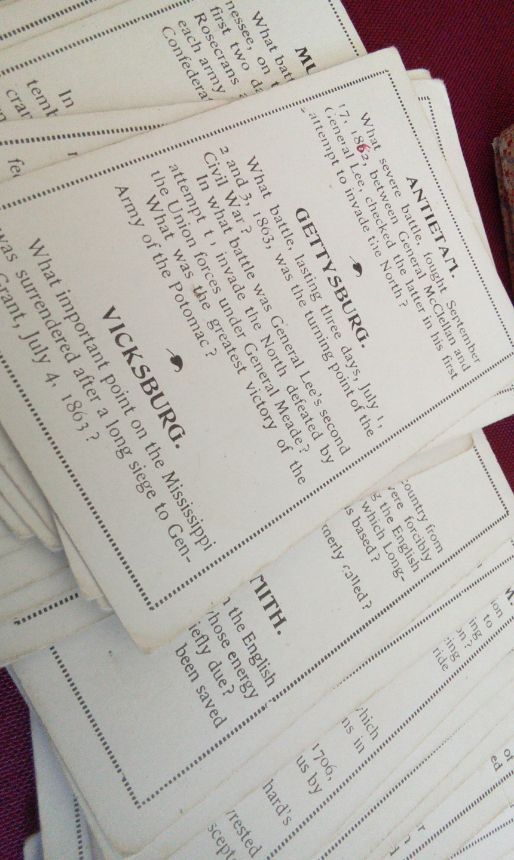 MU
What batt
nessee, on t
first two da
Rosecrans
each army
Confedera
In
temt
crar
fe
ANTIETAM.
What severe battle, fought September
17, 1862, between General McClellan and
General Lee, checked the latter in his first
attempt to invade the North?
GETTYSBURG.
What battle, lasting three days, July 1,
2 and 3, 1863, was the turning point of the
Civil War?
In what battle was General Lee's second
attempt t, invade the North defeated by
the Union forces under General Meade?
What was the greatest victory of the
Army of the Potomac?
VICKSBURG.
What important point on the Mississippi
was surrendered after a long siege to Gen-
Grant, July 4, 1863?
ountry from
ere forcibly
g the English
which Long-
s based?
merly called?
MITH.
n the English
hose energy
iefly due?
been saved
hich
ns in
1706,
us by
hard's
rested
scept-
M.
ion
ing to
on?
ring
ride
of
ed